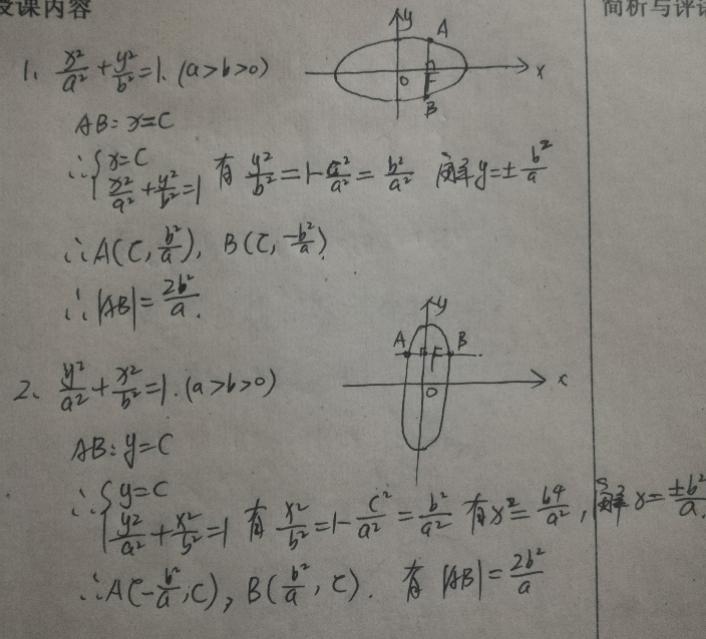 授课内容
简析与评
1、x²/a² + y²/b² = 1. (a>b>0)
y A O F x B
AB: x=c
∴ { x=c
x²/a² + y²/b² = 1 有 y²/b² = 1 - c²/a² = b²/a² 解 y = ± b²/a
∴ A(c, b²/a), B(c, -b²/a).
∴ |AB| = 2b²/a.
y A F B O x
2、y²/a² + x²/b² = 1. (a>b>0)
AB: y=c
∴ { y=c
y²/a² + x²/b² = 1 有 x²/b² = 1 - c²/a² = b²/a² 有 x² = b⁴/a², 解 x = ±b²/a.
∴ A(-b²/a, c), B(b²/a, c). 有 |AB| = 2b²/a